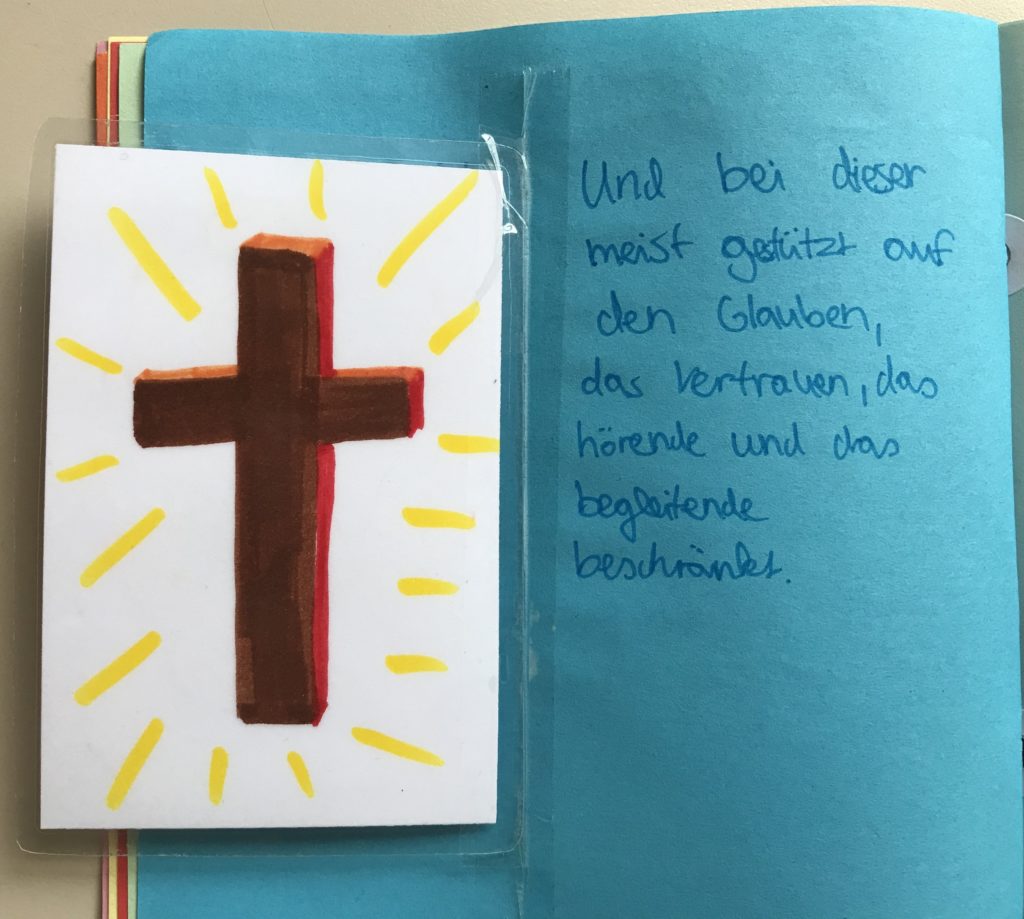 Und bei dieser
meist gestützt auf
den Glauben,
das Vertrauen, das
hörende und das
begleitende
beschränkt.